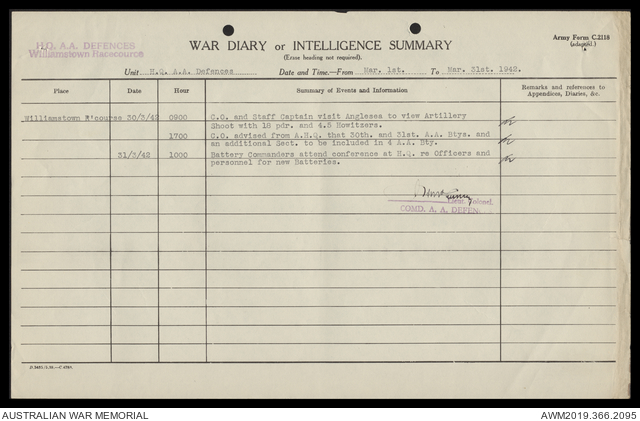 H.Q. A.A. DEFENCES
Williamstown Racecource
WAR DIARY or INTELLIGENCE SUMMARY
(Erase heading not required).
Army Form C.2118
(adapted.)
Unit H.Q. A.A. Defences Date and Time.—From Mar. 1st. To Mar. 31st. 1942.
Place Date Hour Summary of Events and Information Remarks and references to Appendices, Diaries, &c.
Williamstown R'course 30/3/42 0900 C.O. and Staff Captain visit Anglesea to view Artillery
Shoot with 18 pdr. and 4.5 Howitzers.
1700 C.O. advised from A.H.Q. that 30th. and 31st. A.A. Btys. and
an additional Sect. to be included in 4 A.A. Bty.
31/3/42 1000 Battery Commanders attend conference at H.Q. re Officers and
personnel for new Batteries.
Lieut. Colonel.
COMD. A. A. DEFEN
AUSTRALIAN WAR MEMORIAL
AWM2019.366.2095